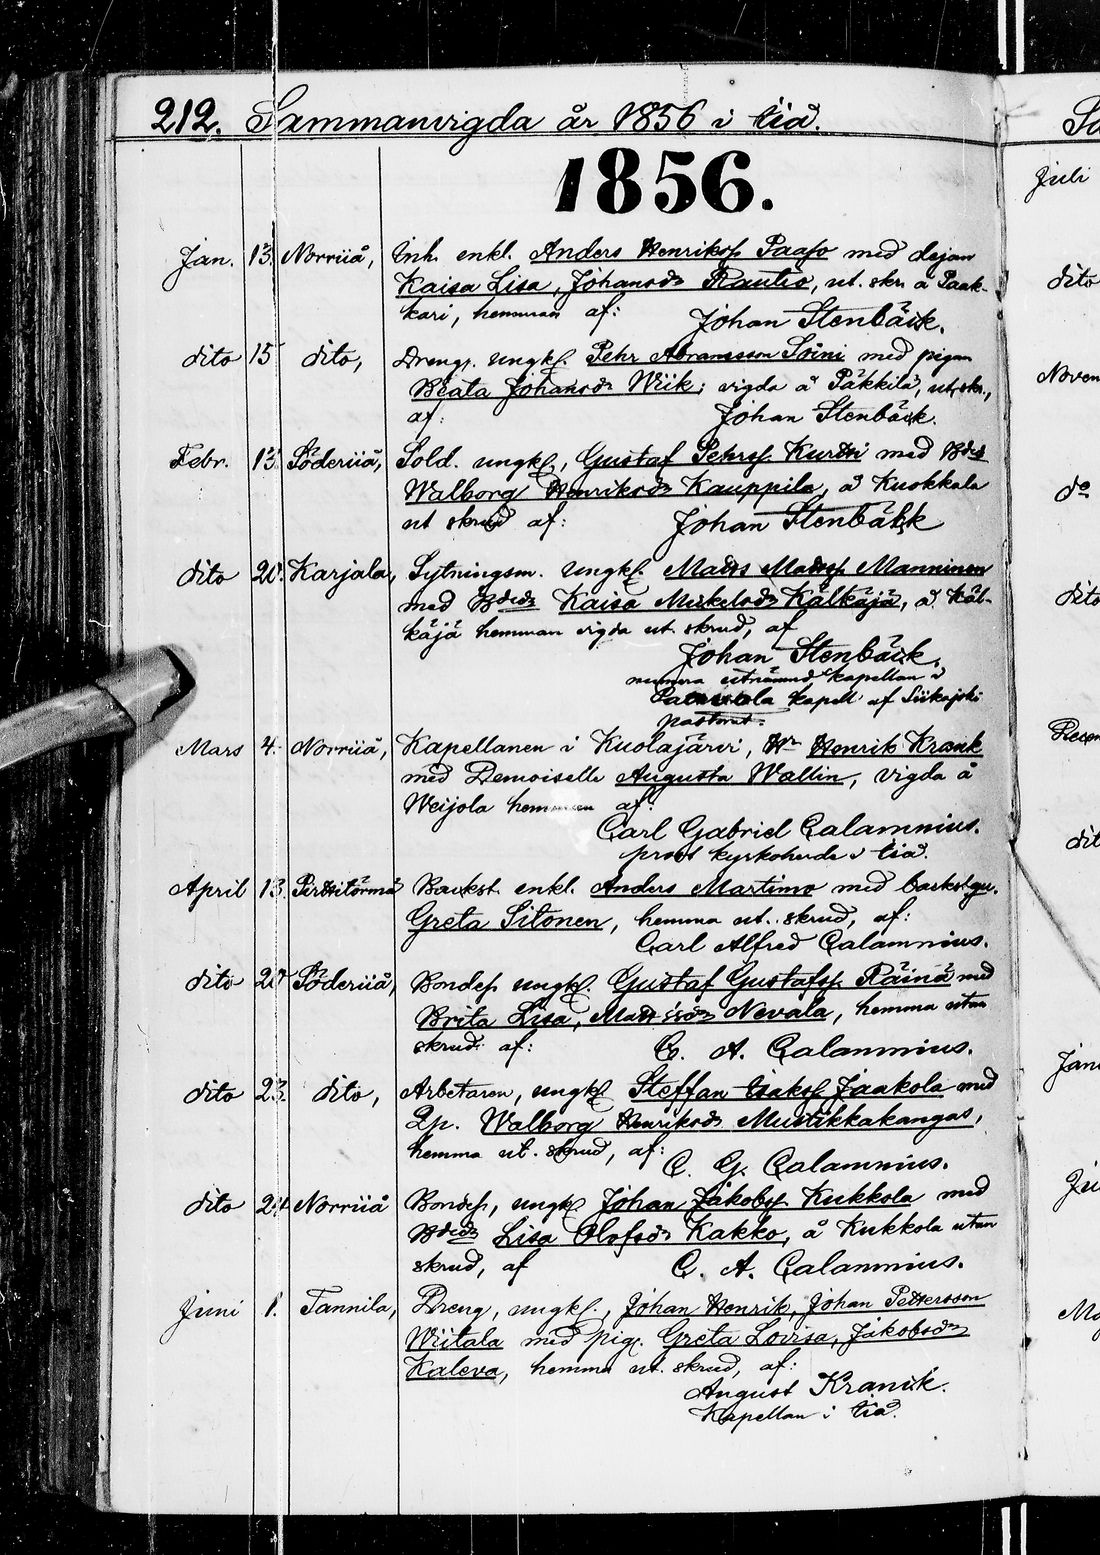 212. Sammanvigda år 1856 i Iiå.
1856.
Jan. 13. Norriiå, Inh. enkl. Anders Henrikss. Paaso med dejan
Kaisa Lisa, Johansdr Rautio, ut. skr. å Paak-
kari, hemman af: Johan Stenbäck.
dito 15 dito, Drengs. ungk. Pehr Abramsson Soini med pigan
Beata Johansdr Wiik; vigda å Päkkilä, ut. skr.,
af: Johan Stenbäck.
Febr. 13. Söderiiå, Sold. ungk., Gustaf Pehrss. Kurtti med Bdr
Walborg Henriksdr Kauppila, å Kuokkala
ut skrud af: Johan Stenbäck
dito 20. Karjala, Sytningsm. ungk. Matts Mattss. Manninen
med Bdr Kaisa Mickelsdr Kälkäjä, å Käl-
käjä hemman vigda ut. skrud, af
Johan Stenbäck,
numera utnämnd kapellan i
kapell af Siikajoki
pastorat.
Mars 4. Norriiå, Kapellanen i Kuolajärvi, Hr Henrik Krank
med Demoiselle Augusta Wallin, vigda å
Weijola hemman af:
Carl Gabriel Calamnius.
prost kyrkoherde i Iiå.
April 13. Perttitörmä Backst. enkl. Anders Martimo med backst. qu.
Greta Sitonen, hemma ut. skrud, af:
Carl Alfred Calamnius.
dito 20 Söderiiå, Bondes. ungk. Gustaf Gustafss. Räinä med
Brita Lisa, Matt:sdr Nevala, hemma utan
skrud: af: C. A. Calamnius.
dito 23. dito, Arbetaren, ungk. Steffan Isakss. Jaakola med
Qp. Walborg Henriksdr Mustikkakangas,
hemma ut. skrud, af: C. G. Calamnius.
dito 24. Norriiå Bondes, ungk Johan Jakobss. Kukkola med
Bdr Lisa Olofsdr Kakko, å Kukkola utan
skrud, af C. A. Calamnius.
Juni 1. Tannila, Dreng, ungk., Johan Henrik, Johan Pettersson
Wiitala med pig. Greta Lovisa, Jakobsdr
Kaleva, hemma ut. skrud, af:
August Kranck.
Kapellan i Iiå.
Juli
dito
Noven
do
dito
Decem
dit
Jan
Ju